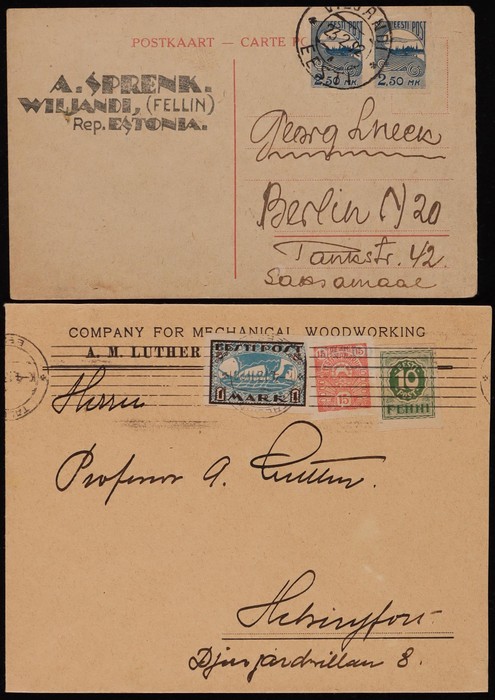 POSTKAART — CARTE PO
A. SPRENK.
WILJANDI, (FELLIN)
Rep. ESTONIA.
VILJANDI
23.2.22
EESTI
EESTI POST
2,50 MK
EESTI POST
2,50 MK
Georg
Berlin N 20
Tankstr. 42.
Saksamaal
COMPANY FOR MECHANICAL WOODWORKING
A. M. LUTHER
EESTI POST
1 MARK 1
15 15
15
EESTI
10
POST
PENNI
Herrn
Professor A.
Helsingfors
8.